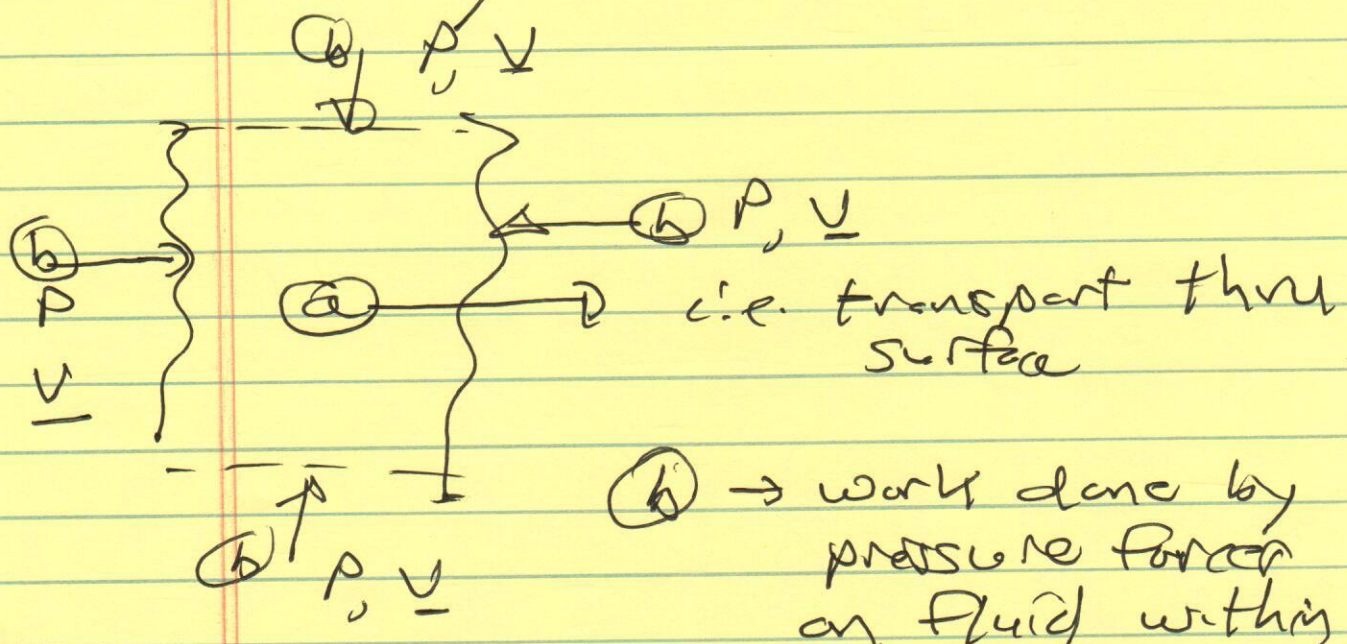 ⓑ P, V
ⓑ P, V
ⓑ
P
V
ⓐ i.e. transport thru
surface
ⓑ → work done by
pressure forces
on fluid within
ⓑ P, V